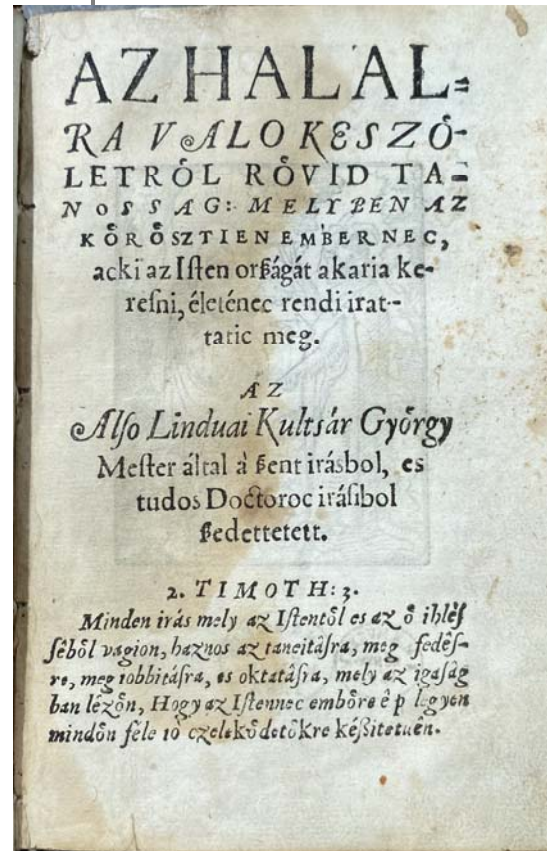 AZ HALAL=
RA VALO KESZÖ-
LETRÖL RÖVID TA=
NOSSAG: MELYBEN AZ
KÖRÖSZTIEN EMBERNEC,
acki az Iſten orßágát akaria ke-
reſni, életénec rendi irat-
tatic meg.
AZ
Alſo Linduai Kultsár György
Meſter által à ßent irásbol, es
tudos Doctoroc iráſibol
ßedettetett.
2. TIMOTH: 3.
Minden irás mely az Iſtentöl es az ö ihlêſ
ſéböl vagion, haznos az taneitâſra, meg fedêſ-
re, meg iobbitáſra, es oktatâſra, mely az igaſâg
ban lêzön, Hogy az Iſtennec emböre ê p légyen
mindön féle iò czeleködetökre kéſsitetuên.